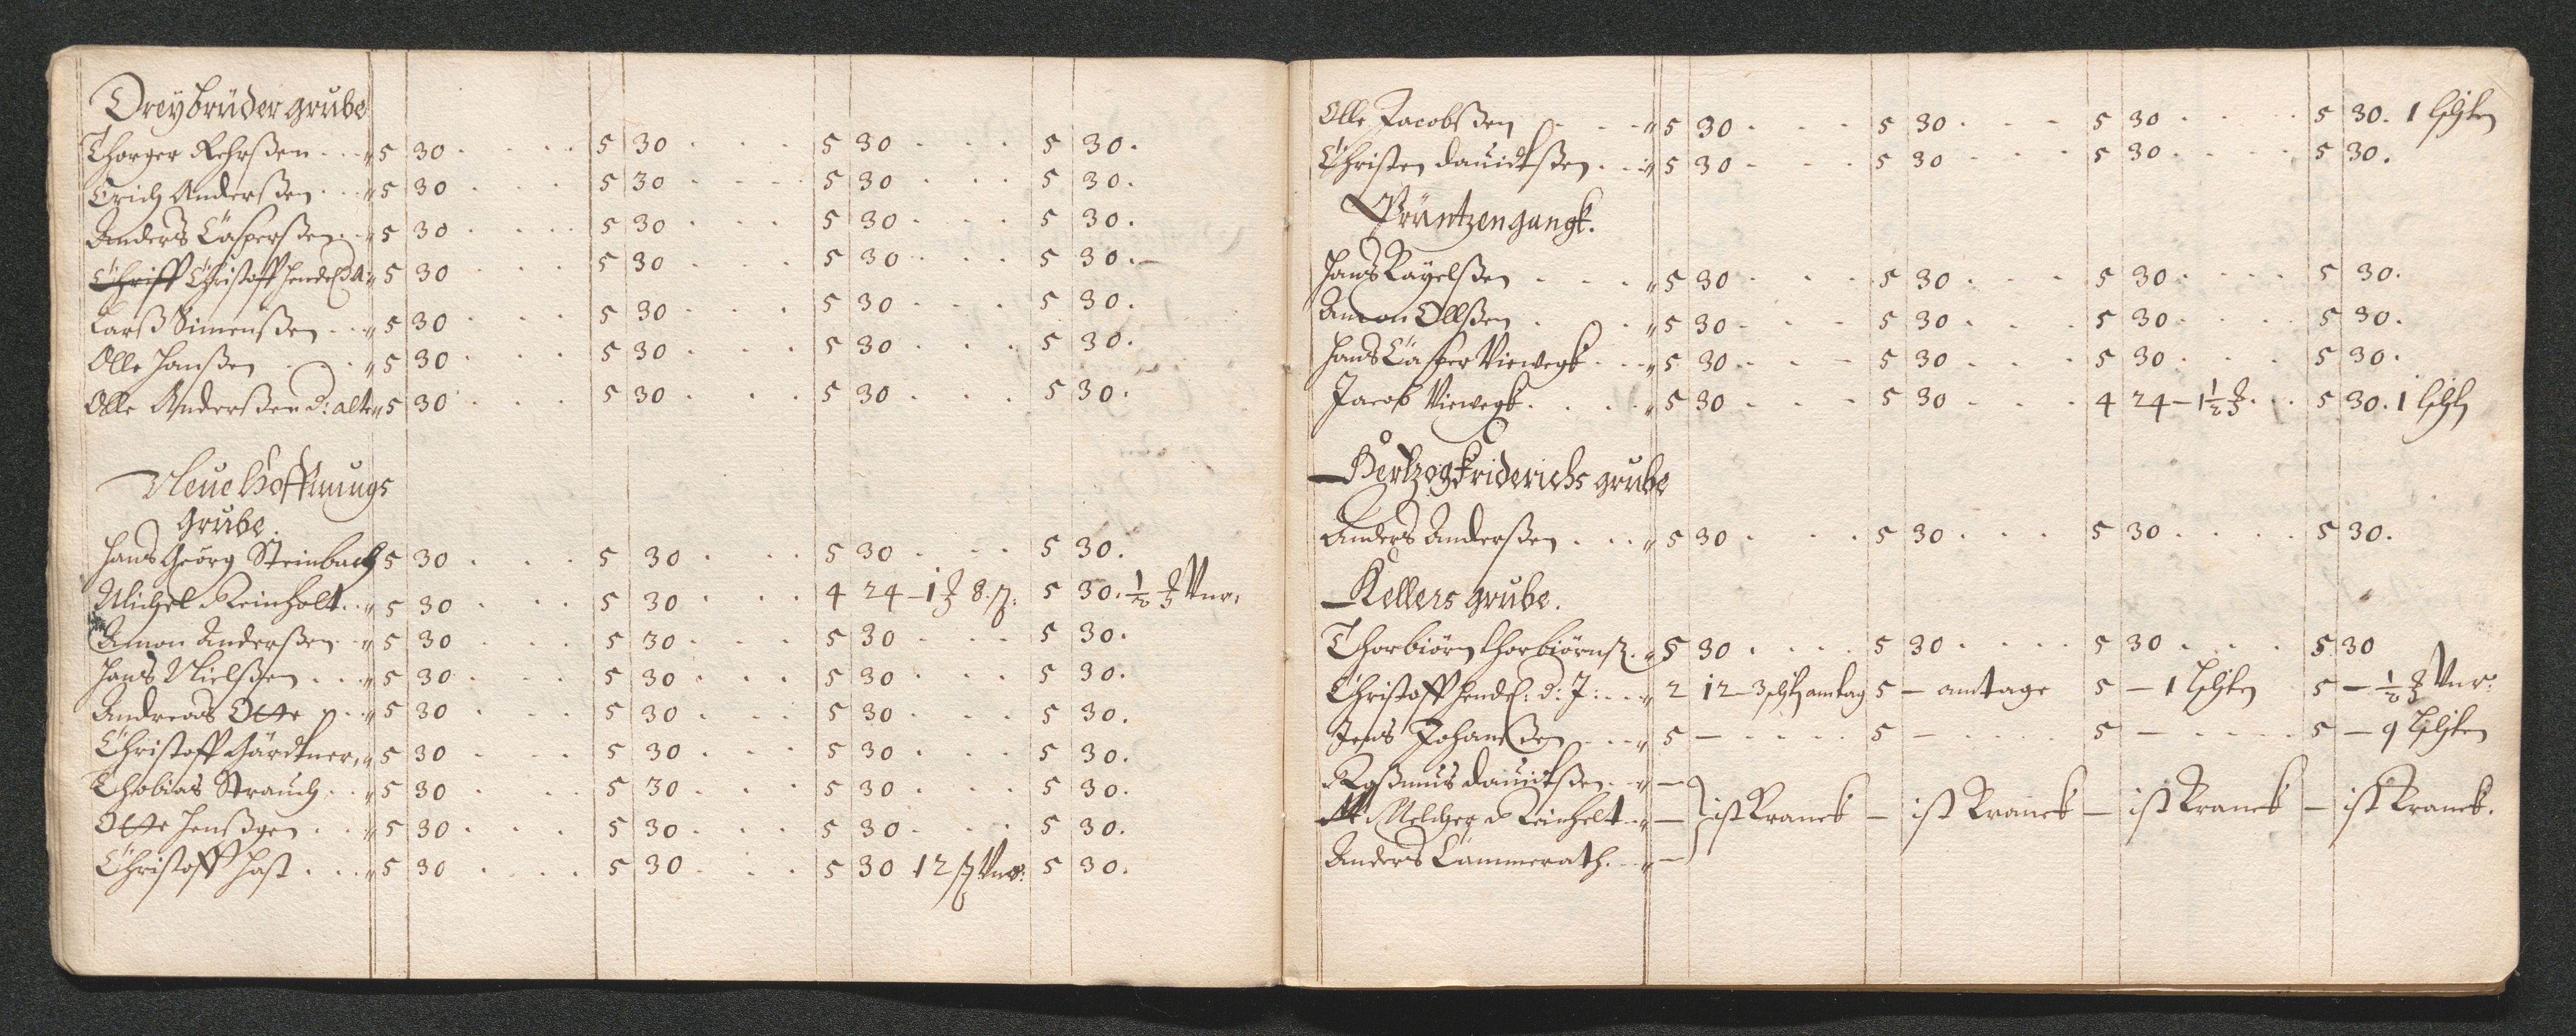 Dreÿbrüder grube
Thorger Rehrßen . . . " 5 30 . . . . 5 30 . . . 5 30 . . . 5 30.
Erich Anderßen . . . " 5 30 . . . 5 30 . . . 5 30 . . . 5 30.
Anders Casperßen . . " 5 30 . . . . 5 30 . . . 5 30 . . . 5 30.
Christoff Hendel d A: " 5 30 . . . 5 30 . . . 5 30 . . . 5 30.
Larß Simenßen . . . " 5 30 . . . 5 30 . . . 5 30 . . . 5 30.
Olle Hanßen . . . " 5 30 . . . 5 30 . . . 5 30 . . . 5 30.
Olle Anderßen d: alte " 5 30 . . . 5 30 . . . 5 30 . . . 5 30.
Neue Hoffnungs
Grube.
Hans Georg Steinbach 5 30 . . . 5 30 . . . 5 30 . . . 5 30.
Michel Reinholt . . " 5 30 . . . 5 30 . . . 4 24 – 1 8 5 30. ½ Vnr.
Amon Anderßen . . " 5 30 . . . 5 30 . . . 5 30 . . . 5 30.
Hans Nielßen . . . " 5 30 . . . 5 30 . . . 5 30 . . . 5 30.
Andreas Otte . . . " 5 30 . . . 5 30 . . . 5 30 . . . 5 30.
Christoff Gärdtner " 5 30 . . . 5 30 . . . 5 30 . . . 5 30.
Thobias Strauch . . " 5 30 . . . 5 30 . . . 5 30 . . . 5 30.
Otte Henßgen . . " 5 30 . . . 5 30 . . . 5 30 . . . 5 30.
Christoff Hast . . . " 5 30 . . . . 5 30 . . . 5 30 12 Vnr: 5 30.
Olle Jacobßen . . . " 5 30 . . . 5 30 . . . 5 30 . . . . 5 30. 1
Christen dauidtßen . . " 5 30 . . . 5 30 . . . 5 30 . . . . 5 30.
Printzengangk.
Hans Rayelßen . . . " 5 30 . . . 5 30 . . . 5 30 . . . . 5 30.
Amon Ollßen . . . " 5 30 . . . 5 30 . . . 5 30 . . . . 5 30.
Hans Casper Viewegk . . " 5 30 . . . 5 30 . . . 5 30 . . . 5 30.
Jacob Viewegk . . . . " 5 30 . . . 5 30 . . . 4 24 – 1½ . . 5 30. 1
Hertzog Friderichs grube
Anders Anderßen . . . " 5 30 . . . 5 30 . . . 5 30 . . . . 5 30.
Kellers grube.
Thorbiörn Thorbiörnß. " 5 30 . . . . 5 30 . . . . 5 30 . . . . 5 30
Christoff Hendel: d: J: . . " 2 12 – 3 amtag 5 – amtage 5 – 1 5 – ½ Vnr:
Jens Johanßen . . . " 5 – . . . . 5 – . . . . 5 – . . . . 5 – 9
Raßmus dauidtßen . . " –
Melcher Reinholt . . " – ist Kranck – ist Kranck – ist Kranck – ist Kranck.
Anders Cammerath . . " –